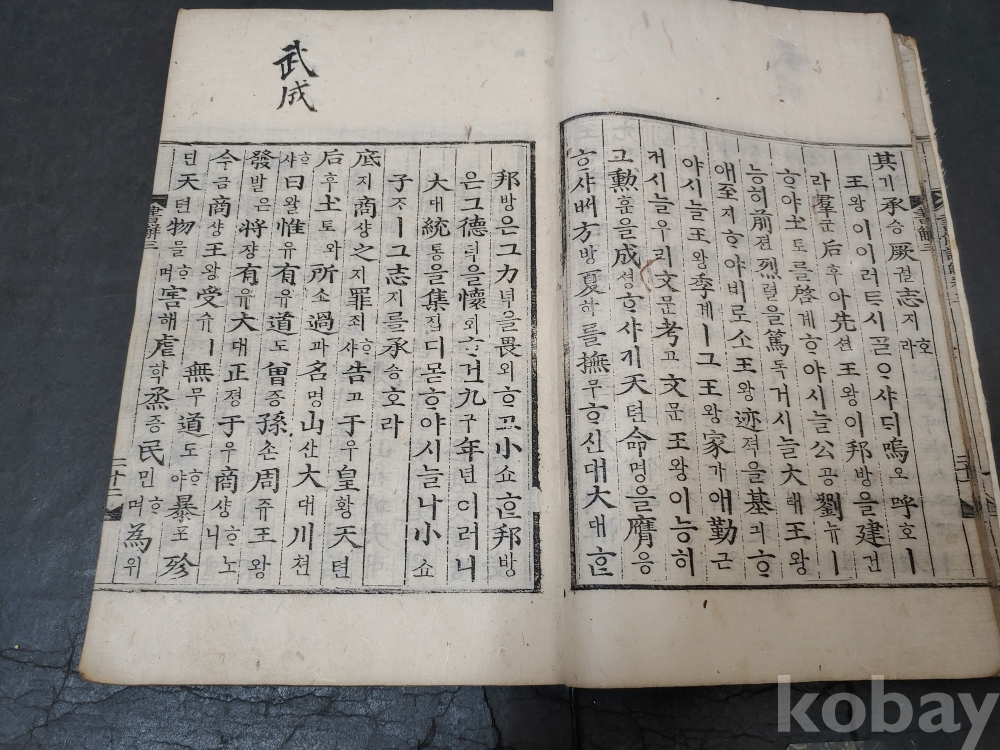 其기承승厥궐志지호라
王왕이이러ᄐᆞ시ᄀᆞᆯᄋᆞ샤ᄃᆡ嗚오呼호ㅣ
라羣군后후아先션王왕이邦방을建건
ᄒᆞ야土토ᄅᆞᆯ啓계ᄒᆞ야시ᄂᆞᆯ公공劉뉴ㅣ
능히前젼烈렬을篤독거시ᄂᆞᆯ大태王왕
애至지ᄒᆞ야비로소王왕迹젹을基긔ᄒᆞ
야시ᄂᆞᆯ王왕季계ㅣ그王왕家가애勤근
커시ᄂᆞᆯ우리文문考고文문王왕이능히
그勳훈을成셩ᄒᆞ샤기天텬命명을膺응
ᄒᆞ샤ᄡᅥ方방夏하ᄅᆞᆯ撫무ᄒᆞ신대大대ᄒᆞᆫ
武成
邦방은그力력을畏외ᄒᆞ고小쇼ᄒᆞᆫ邦방
은그德덕을懷회ᄒᆞ건九구年년이러니
大대統통을集집디몯ᄒᆞ야시ᄂᆞᆯ나小쇼
子ᄌᆞㅣ그志지를承승호라
底지商샹之지罪죄ᄒᆞ샤告고于우皇황天텬
后후土토와所소過과名명山산大대川쳔
ᄒᆞ샤曰왈惟유有유道도曾증孫손周쥬王왕
發발은將쟝有유大대正졍于우商샹ᄒᆞ노니
今금商샹王왕受슈ㅣ無무道도ᄒᆞ야暴포殄
뎐天텬物믈ᄒᆞ며害해虐학烝증民민ᄒᆞ며為위
書解三
二十二
kobay